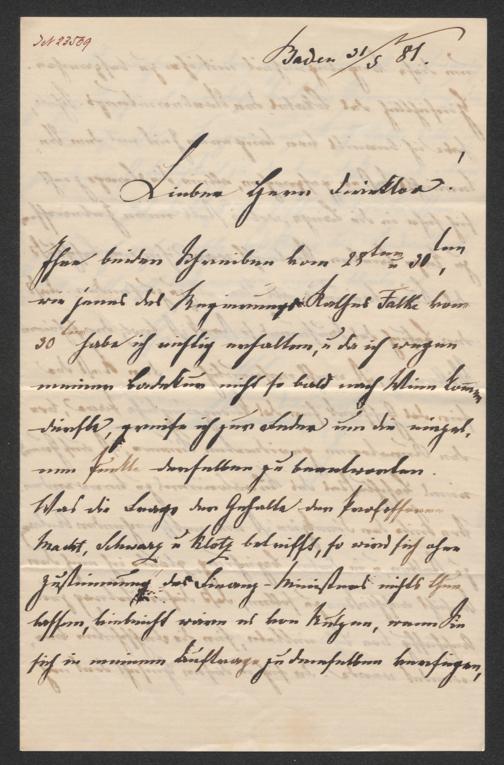 IN 23569
Baden 31/5 81.
Lieber Herr Direktor!
Ihre beiden Schreiben vom 28ten u 30ten,
wie jenes des Regierungs Rathes Falke vom
30ten habe ich richtig erhalten, u da ich wegen
meiner Badekur nicht so bald nach Wien kommen
dürfte, greife ich zur Feder um die einzel-
nen Punkte derselben zu beantworten.
Was die Frage der Gehalte der Professoren
Macht, Schwarz u Klotz betrifft, so wird sich ohne
Zustimmung des Finanz-Ministers nichts thun
lassen, vielleicht wäre es von Nutzen, wenn Sie
sich in meinem Auftrage zu demselben verfügen,